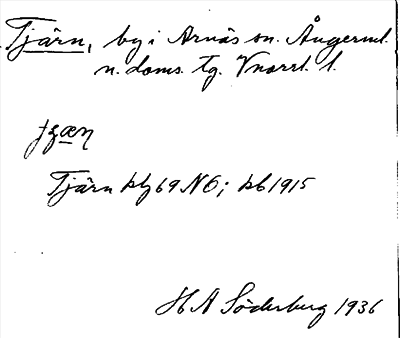 Tjärn, by i Arnäs sn. Ångerml.
n. doms. tg. Vnorrl. l.
Tjärn kbl 69 NO; kb 1915
H A Söderberg 1936